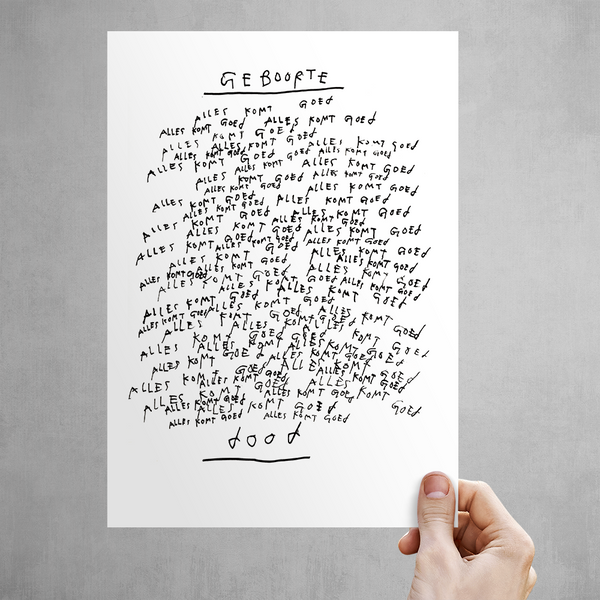 GEBOORTE
ALLES KOMT GOEd
ALLES KOMT GOEd ALLES KOMT GOEd
ALLES KOMT GOEd
ALLES KOMT GOEd ALLES KOMT GOEd
ALLES KOMT GOEd ALLES KOMT GOEd
ALLES KOMT GOEd ALLES KOMT GOEd
ALLES KOMT GOEd
ALLES KOMT GOEd ALLES KOMT GOEd
ALLES KOMT GOEd ALLES KOMT GOEd
ALLES KOMT GOEd ALLES KOMT GOEd
ALLES KOMT GOEd ALLES KOMT GOEd
ALLES KOMT GOEd ALLES KOMT GOEd
ALLES KOMT GOEd ALLES KOMT GOEd
ALLES KOMT GOEd ALLES KOMT GOEd
ALLES KOMT GOEd ALLES KOMT GOEd
ALLES KOMT GOEd ALLES KOMT GOEd
ALLES KOMT GOEd ALLES KOMT GOEd
ALLES KOMT GOEd ALLES KOMT GOEd
ALLES KOMT GOEd ALLES KOMT GOEd
ALLES KOMT GOEd ALLES KOMT GOEd
ALLES KOMT GOEd ALLES KOMT GOEd
ALLES KOMT GOEd ALLES KOMT GOEd
ALLES KOMT GOEd ALLES KOMT GOEd
ALLES KOMT GOEd
ALLES KOMT GOEd ALLES KOMT GOEd
dood